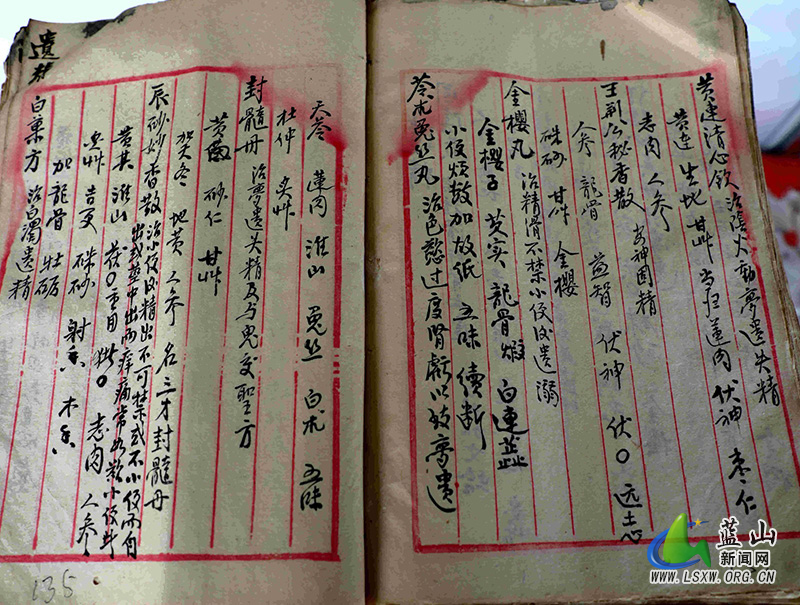 黄连清心饮 治阴火动梦遗失精
黄连 生地 甘艸 当归 莲肉 伏神 枣仁
志肉 人参
王荆公秘香散 安神固精
人参 龙骨 益智 伏神 伏〇 远志
硃砂 甘艸 金樱
金樱丸 治精滑不禁小便后遗溺
金樱子 芡实 龍骨煅 白连蕊
小便烦数加故纸 五味 续断
苓术兔丝丸 治色慾过度肾虧以致夢遗
天苓 莲肉 淮山 兔丝 白术 五味
杜仲 炙艸
封髓丹 治夢遗失精及与鬼交聖方
黄 砂仁 甘艸
加天冬 地黄 人参 名三才封髓丹
辰砂妙香散 治小便后精出不可禁或不小便而自
出或茎中出而痒痛常如欲小便斗
黄芪 淮山 茯〇 志肉 人参
炙艸 吉更 硃砂 射香 木香
加龙骨 牡砺
白薬方 治白濁遗精
遺精
135
蓝山
新闻网
WWW.LSXW.ORG.CN